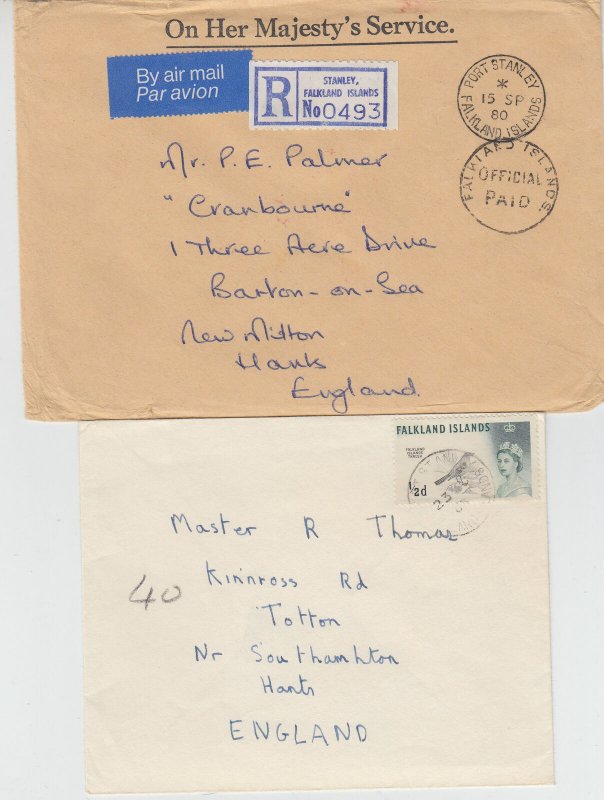 On Her Majesty's Service.
By air mail
Par avion
R
STANLEY,
FALKLAND ISLANDS
No 0493
PORT STANLEY
*
15 SP
80
FALKLAND ISLANDS
FALKLAND ISLANDS.
OFFICIAL
PAID
Mr. P. E. Palmer
"Cranbourne"
1 Three Acre Drive
Barton-on-Sea
New Milton
Hants
England.
FALKLAND ISLANDS
FALKLAND
ISLANDS
THRUSH
½d
23
Master R Thomas
40
Kinnross Rd
Totton
Nr Southamhton
Hants
ENGLAND